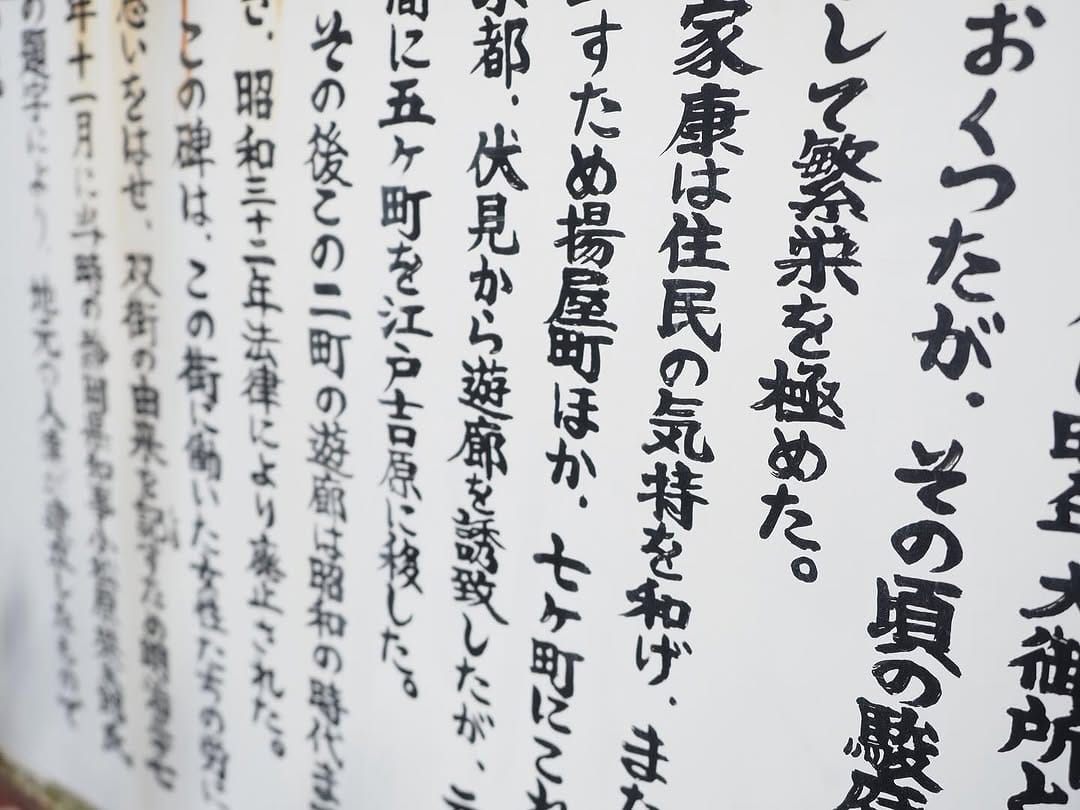 大御所
おくつたが、その頃の駿府
して繁栄を極めた。
家康は住民の気持を和げ、また
すため揚屋町ほか、七ヶ町にこれ
京都、伏見から遊廓を誘致したが、こ
間に五ヶ町を江戸吉原に移した。
その後この二町の遊廓は昭和の時代ま
き、昭和三十二年法律により廃止された。
この碑は、この街に働いた女性たちの
思いをはせ、双街の由来を記すため明治
年十一月に当時の静岡県知事小松原英太郎
の題字により、地元の人達が